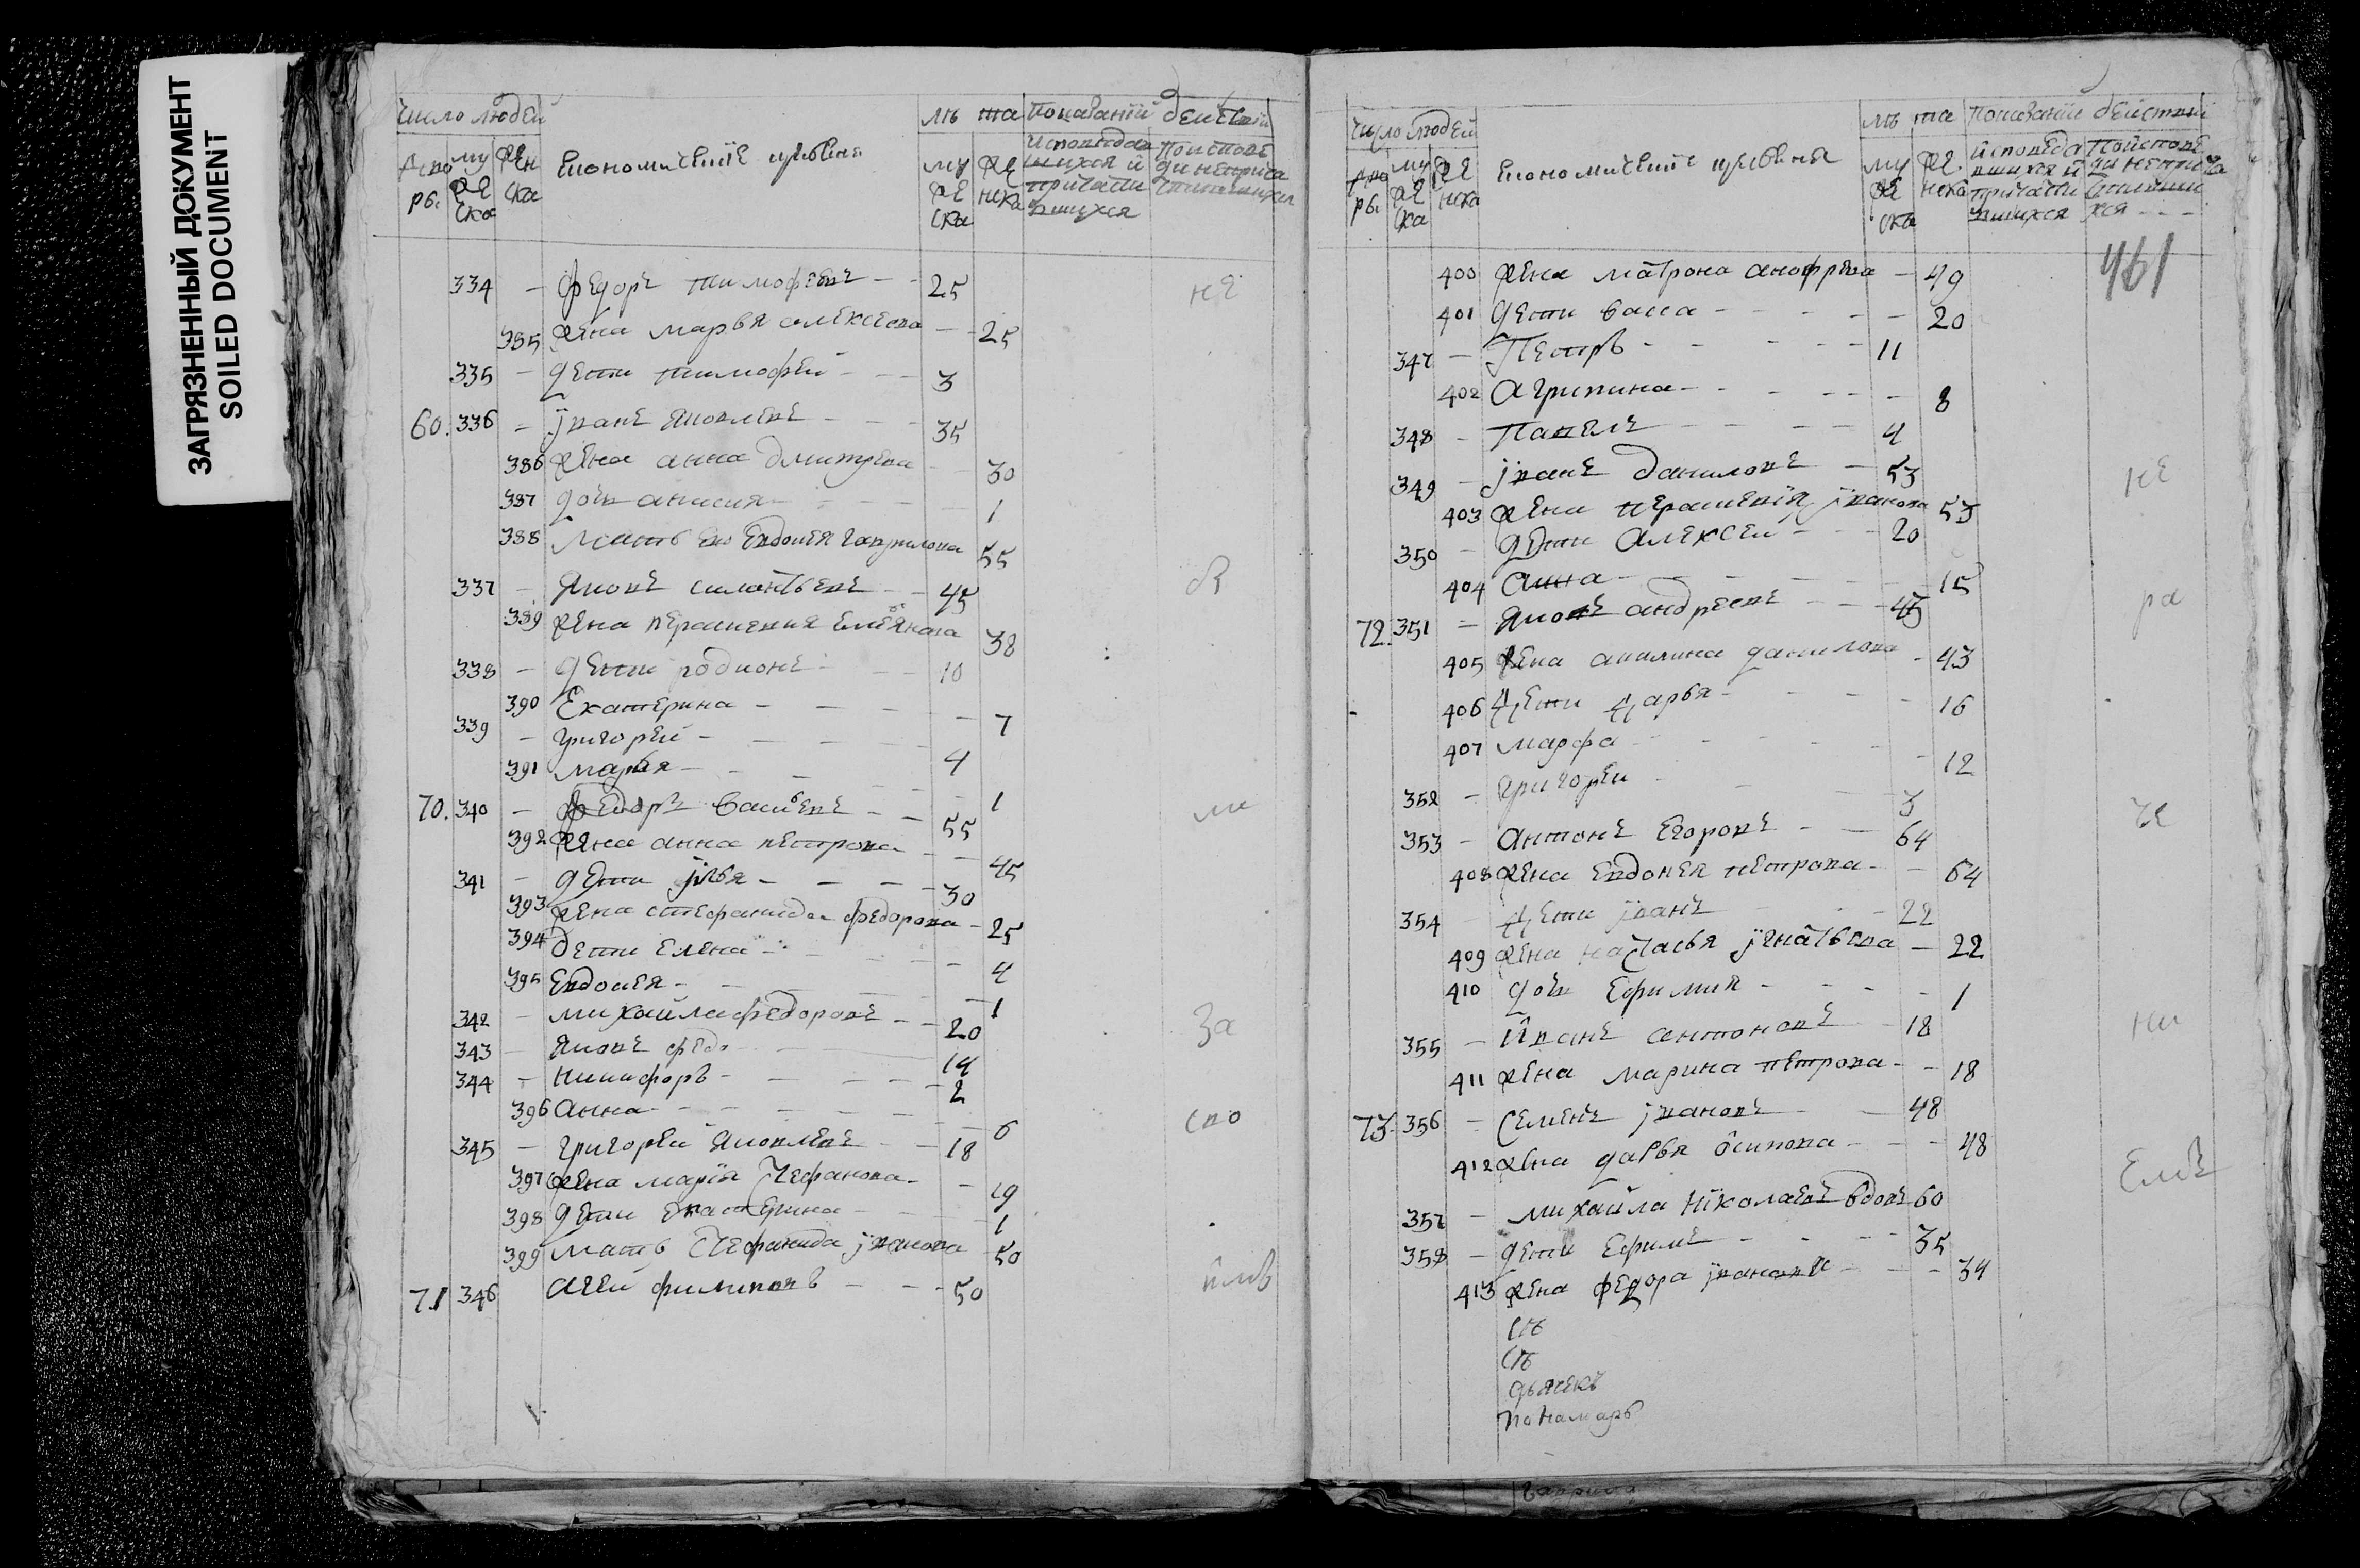 ЗАГРЯЗНЕННЫЙ ДОКУМЕНТ
SOILED DOCUMENT
число людей лѣ та показанїй дѣйствїй
двo ры му же ска жен ска Економическїе му же ска же нска исповѣдав шихся и причасти вшихся
334 - федоръ тимофѣевъ - - 25 не
385 жена марья алексеева - - 25
335 - дети тимофей - - 3
60. 336 - їванъ яковлевъ - - 35
386 жена анна дмитрева - - 30
387 дочь анисия - - 1
388 мать ево Евдокея гаврилова 55
337 - яковъ силантьевъ - - 45
389 жена парасшкевия 38
338 - дети родионъ - - 10
390 Екатерина - - - 7
339 - григорей - - 4
391 марья - - 1
70. 340 - федоръ васильевъ - - 55 ли
392 жена анна петрова - - 45
341 - дети - - - 30
393 жена стефанида федорова - 25
394 дети елена - - 4
395 Евдокея - - 1
342 - михайла федоровъ - - 20 за
343 - яковъ - 14
344 - никифоръ - - - 2
396 анна - - - 6
345 - григорей яковлевъ - - 18 спо
397 жена марїя стефанова - - 19
398 дети екатерина - 1
399 мать стефанида їванова 50
71 346 агей филиповъ - - - 50
число людей лѣ та показанїе действїй
двo ры му же ска же нска Економическїе му же ска же нска исповеда вшихся и причасти вшихся
400 жена матрона анофрева - 49 461
401 дети васса - - - - - 20
347 - Петръ - - - - - 11
402 агрипина - - - - 8
348 - Павелъ - - - - 4
349 - їванъ даниловъ - 53 не
403 жена їванова 53
350 - дети алексей - - 20
404 анна - - - 15
72. 351 - яковъ андреевъ - - 45 ра
405 жена акилина данилова - 43
406 дети дарья - - - 16
407 марфа - - - 12
352 - григорей - - 3
353 - антонъ егоровъ - - 64 че
408 жена евдокея петрова - - 64
354 дети їванъ - 22
409 жена настасья їгнатьева - 22
410 дочь ефимия - - - 1
355 - їванъ антоновъ 18 ни
411 жена марина петрова - - 18
73. 356 - семенъ ївановъ - 48
412 жена дарья осипова - - - 48
357 - михайла нїколаевъ вдовъ 60
358 - дети ефимъ - - - 35
413 жена федора їванова - - 34
дьячекъ
понамарь
гаврила